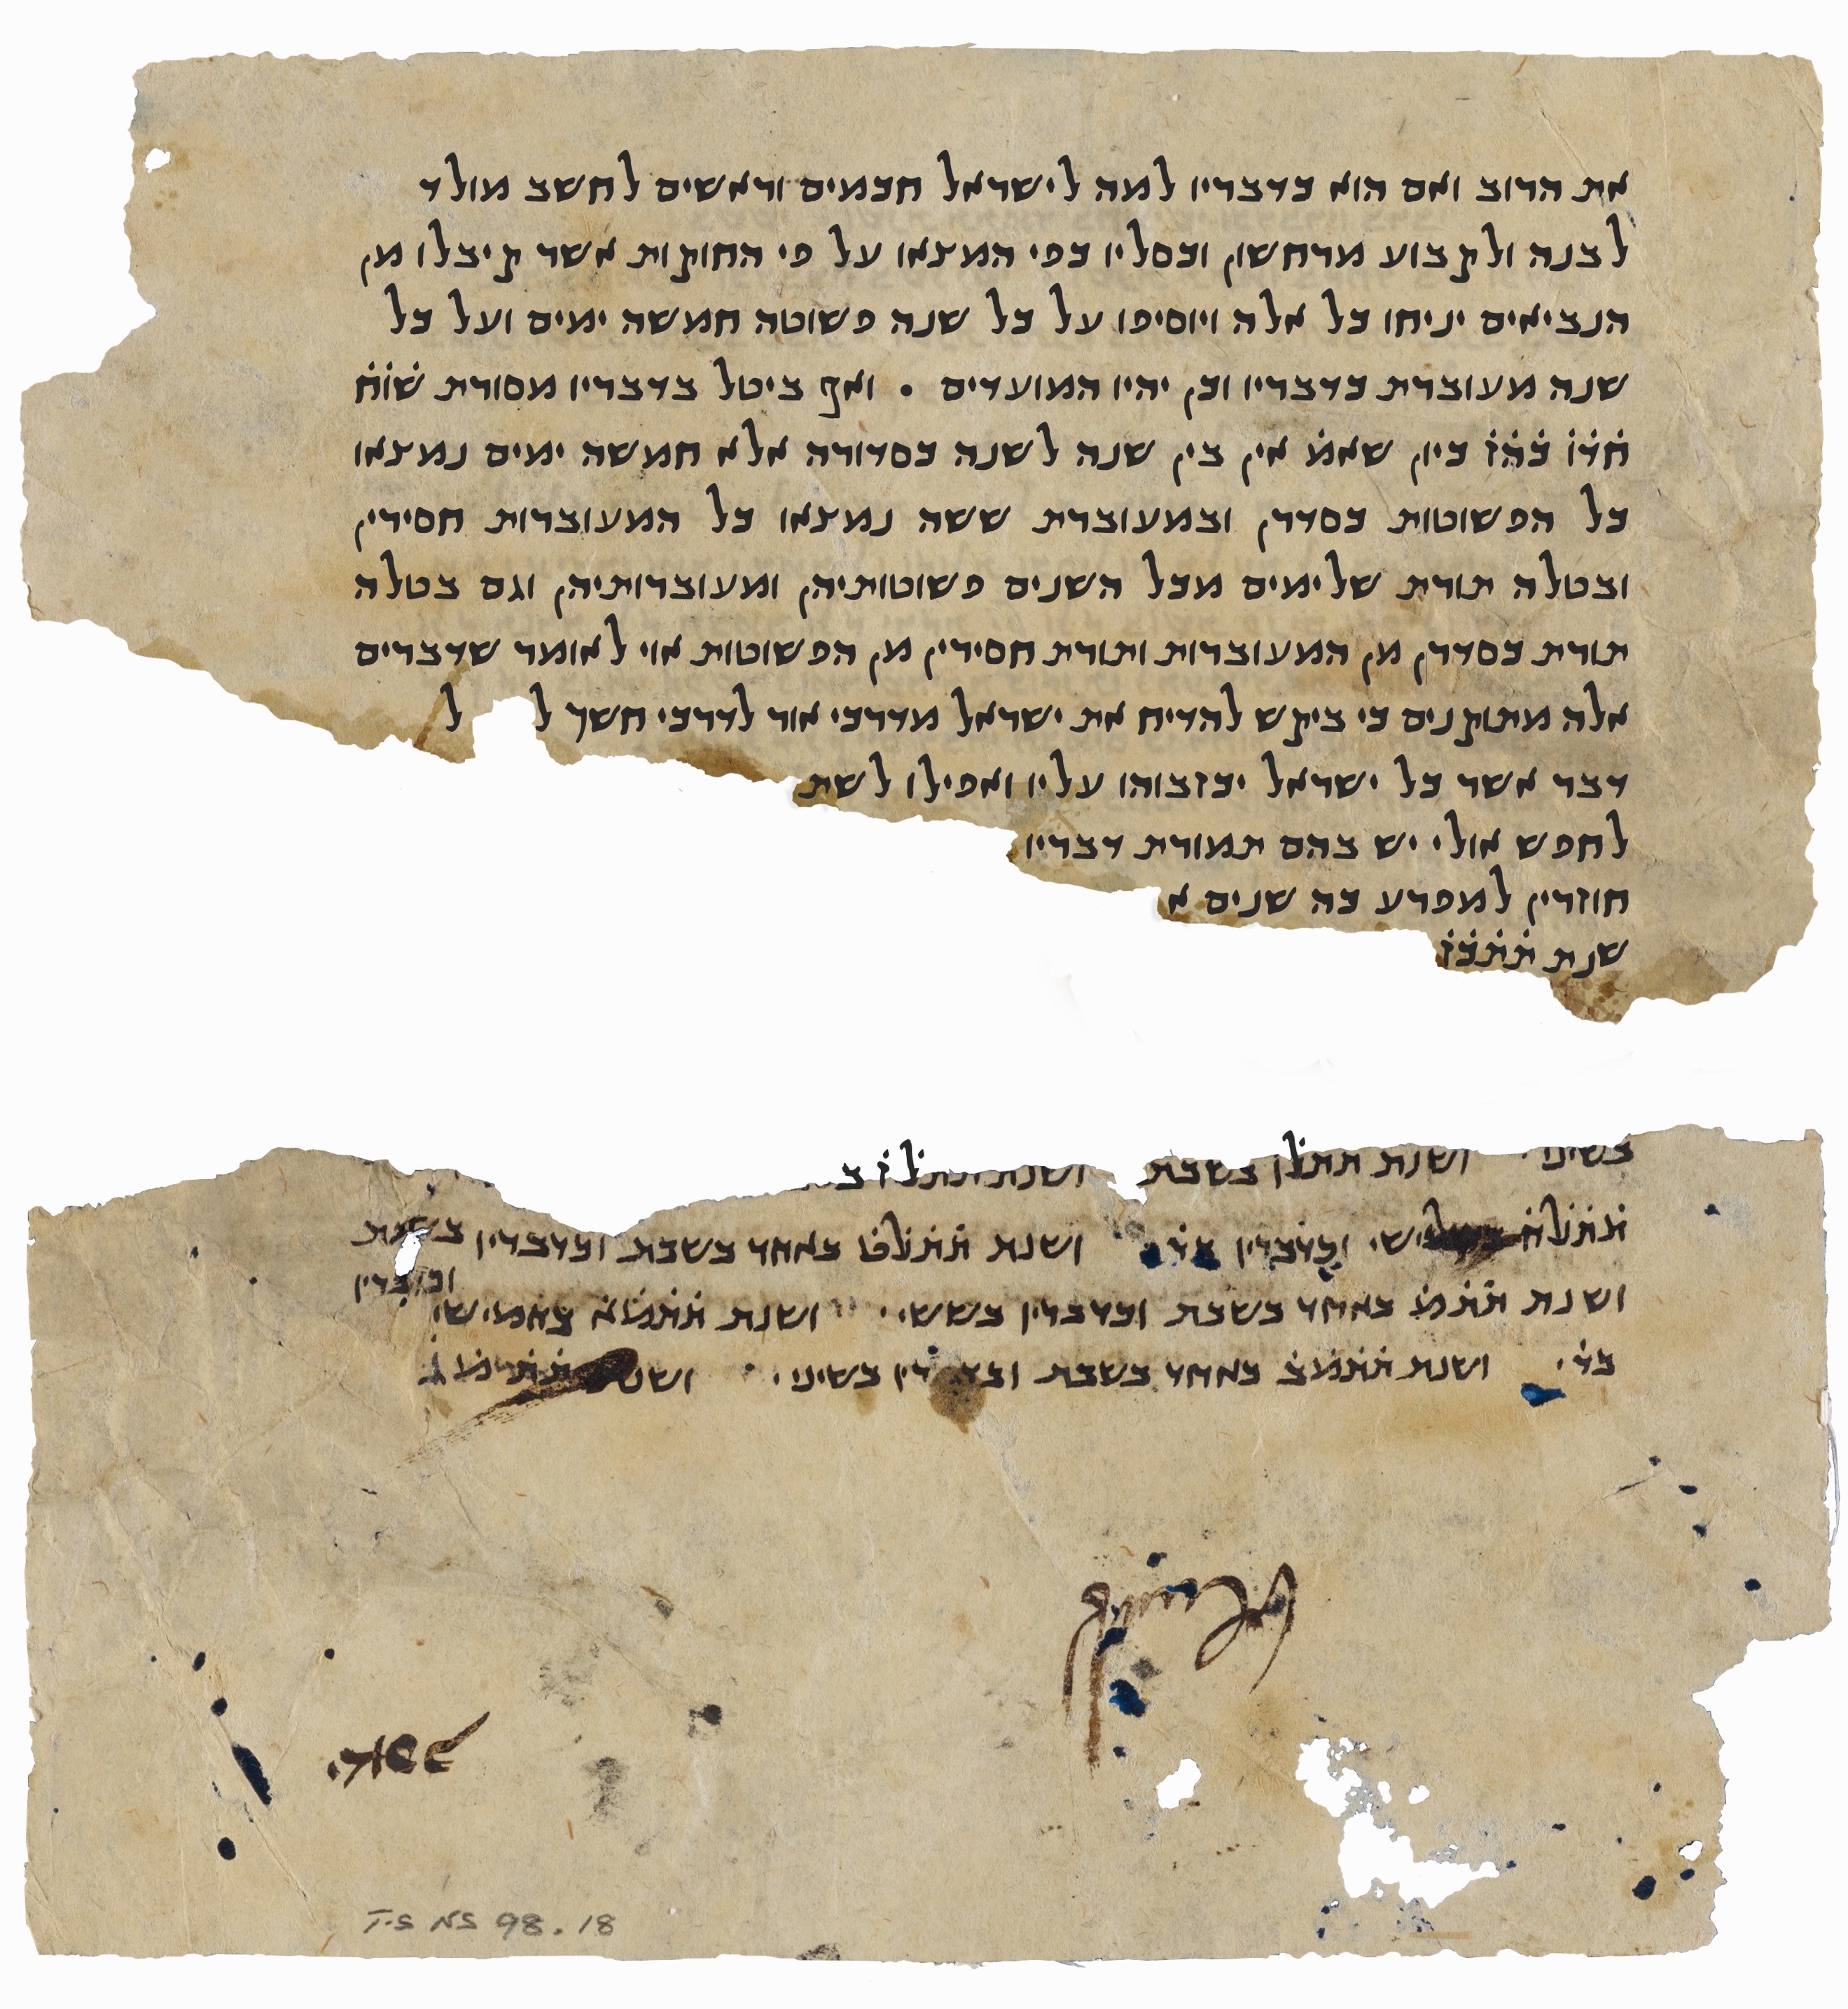 את הרוב ואם הוא כדבריו למה לישראל חכמים וראשים לחשב מולד
לבנה ולקבוע מרחשון וכסליו כפי המצאו על פי החוקות אשר קיבלו מן
הנביאים יניחו כל אלה ויוסיפו על כל שנה פשוטה חמשה ימים ועל כל
שנה מעוברת כדבריו וכן יהיו המועדים • ואף ביטל בדבריו מסורת שׄוׄחׄ
חׄדׄוׄ כׄהׄזׄ כיון שאמׄ אין בין שנה לשנה כסדורה אלא חמשה ימים נמצאו
כל הפשוטות כסדרן ובמעוברת ששה נמצאו כל המעוברות חסירין
ובטלה תורת שלימים מכל השנים פשוטותיהן ומעוברותיהן וגם בטלה
תורת כסדרן מן המעוברות ותורת חסירין מן הפשוטות אוי לאומר שדברים
אלה מתוקנים כי ביקש להדיח את ישראל מדרכי אור לדרכי חשך ל ל
דבר אשר כל ישראל יכזבוהו עליו ואפילו לשת
לחפש אולי יש בהם תמורת דבריו
חוזרין למפרע כה שנים א
שנת תׄתׄכׄזׄ
בשיני · ושנת תתלו בשבת ושנת תתלׄזׄ ב
תׄתׄלׄחׄ ישי וכדבריו בדׄ · ושנת תׄתׄלׄטׄ באחד בשבת וכדבריו בשבת
ושנת תׄתׄמׄ באחד בשבת וכדבריו בששי · ושנת תׄתׄמׄאׄ בחמישי וכדבריו
בדׄ · ושנת תׄתׄמׄבׄ באחד בשבת וכד ריו בשיני · ושנת תׄתׄמׄגׄ
T-S NS 98.18